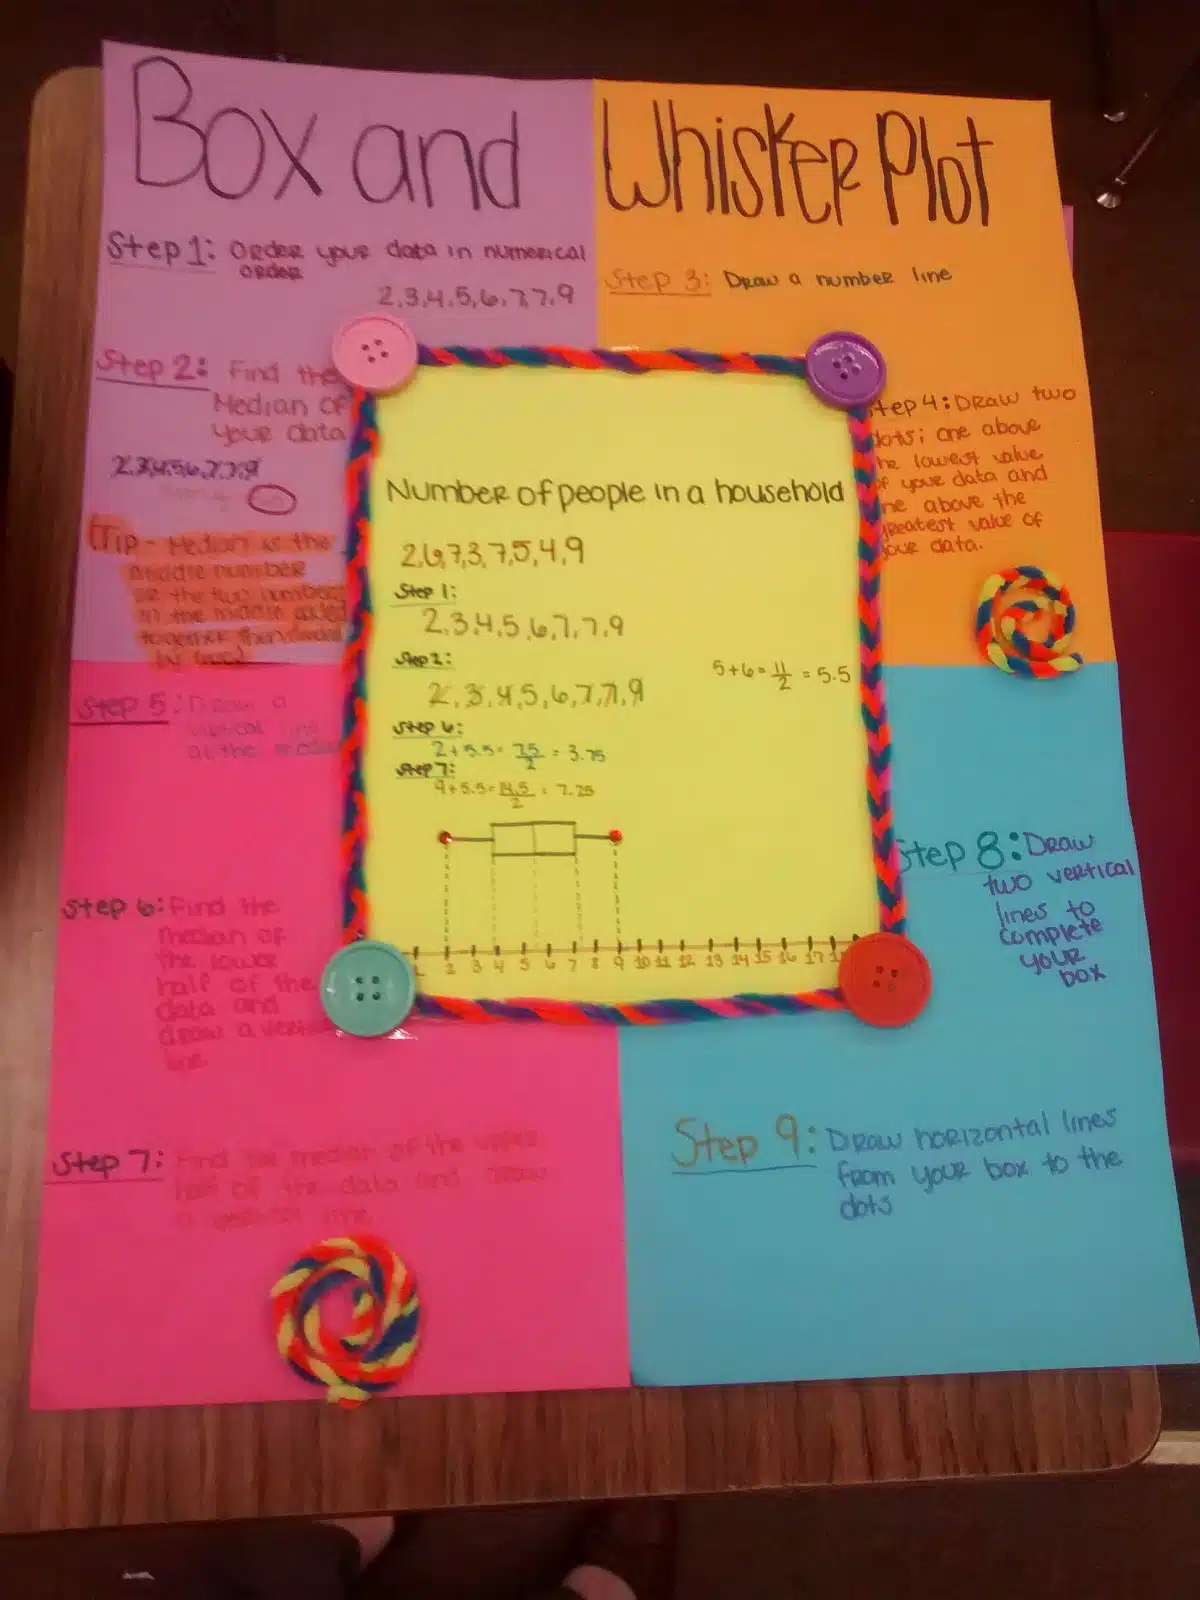 Box and Whisker Plot
Step 1: Order your data in numerical
order
2,3,4,5,6,7,7,9
Step 2: Find the
Median of
your data
2,3,4,5,6,7,7,9
Tip - Median is the
middle number
or the two numbers
in the middle added
together then divided
by two
Step 3: Draw a number line
Step 4: Draw two
dots; one above
the lowest value
of your data and
one above the
greatest value of
your data.
Number of people in a household
2,6,7,3,7,5,4,9
Step 1:
2,3,4,5,6,7,7,9
Step 2:
2,3,4,5,6,7,7,9
5+6=11/2 = 5.5
Step 6:
2+5.5= 7.5/2 = 3.75
Step 7:
9+5.5=14.5/2 = 7.25
1 2 3 4 5 6 7 8 9 10 11 12 13 14 15 16 17 18
Step 5: Draw a
vertical line
at the median
Step 6: Find the
median of
the lower
half of the
data and
draw a vertical
line
Step 7: Find the median of the upper
half of the data and draw
a vertical line
Step 8: Draw
two vertical
lines to
complete
your
box
Step 9: Draw horizontal lines
from your box to the
dots